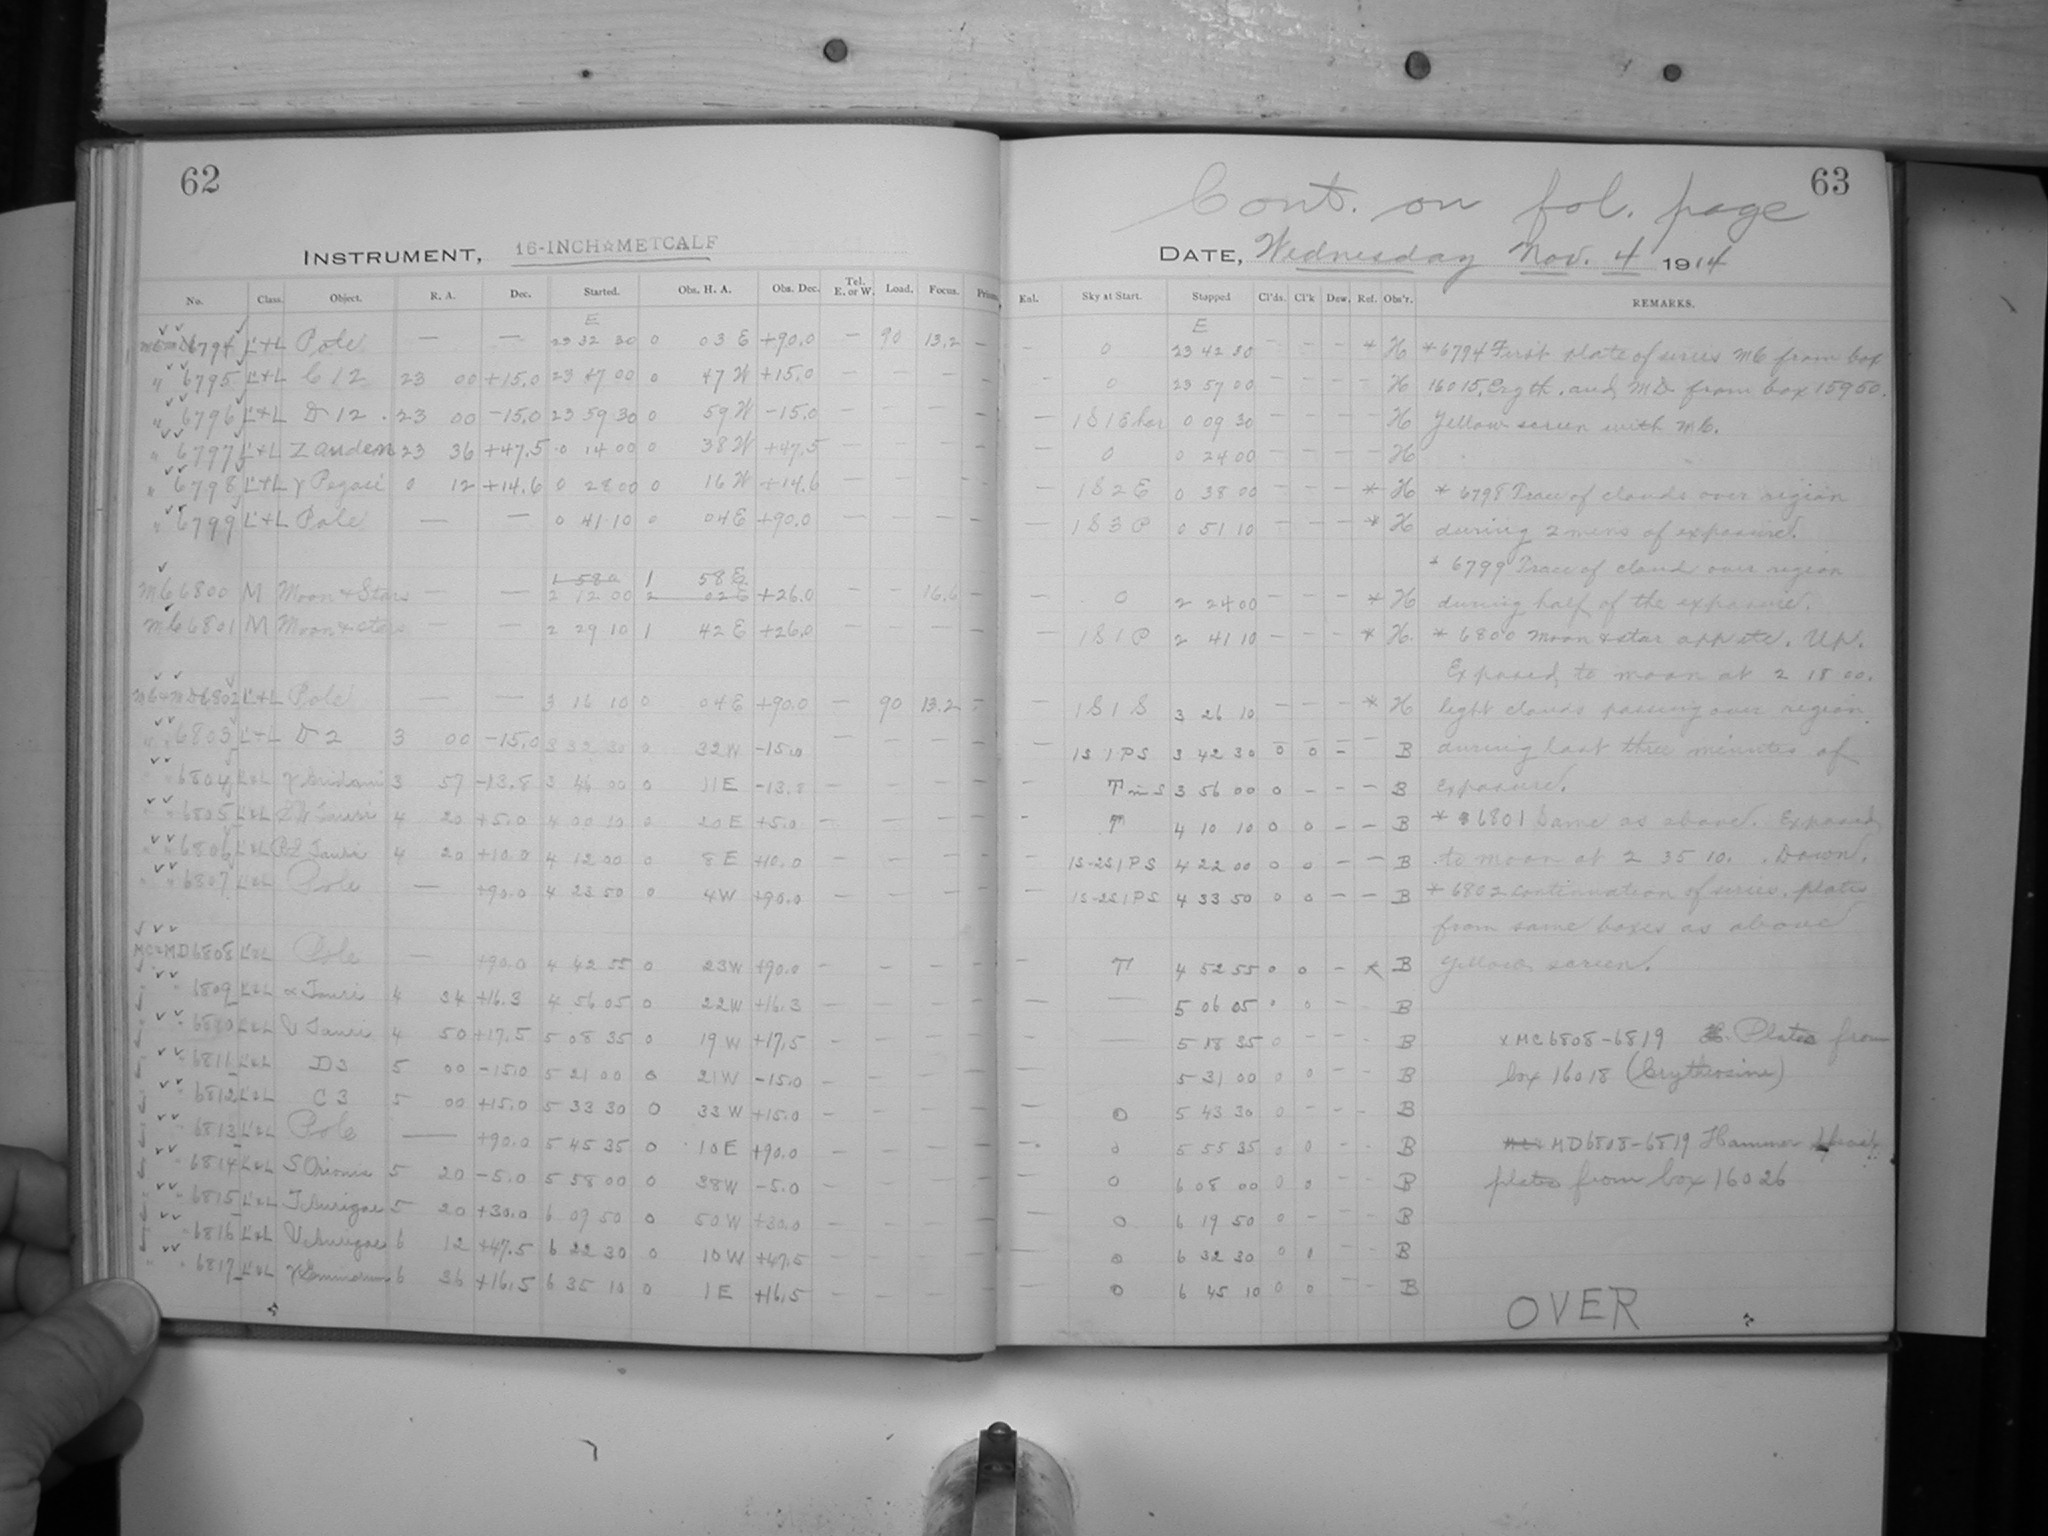 62
INSTRUMENT, 16-INCH☆METCALF
No. Class. Object. R. A. Dec. Started. Obs. H. A. Obs. Dec. Tel. E. or W. Load. Focus.
E
6794 L+L Pole — — 23 32 30 0 03 E +90.0 — 90 13.2 —
" 6795 L+L C 12 23 00 +15.0 23 47 00 0 47 W +15.0 — — — —
" 6796 L+L D 12 23 00 -15.0 23 59 30 0 59 W -15.0 — — — —
" 6797 L+L Z Androm 23 36 +47.5 0 14 00 0 38 W +47.5 — — — —
" 6798 L+L γ Pegasi 0 12 +14.6 0 28 00 0 16 W +14.6 — — — —
" 6799 L+L Pole — — 0 41 10 0 04 E +90.0 — — — —
1 58 1 58 E
MC 6800 M Moon + Stars — — 2 12 00 2 02 E +26.0 — — 16.6 —
MC 6801 M Moon & stars — — 2 29 10 1 42 E +26.0 — — — —
MC+MD 6802 L+L Pole — — 3 16 10 0 04 E +90.0 — 90 13.2 —
" 6803 L+L D 2 3 00 -15.0 3 32 30 0 32 W -15.0 — — — —
" 6804 L&L γ Eridani 3 57 -13.8 3 46 00 0 11 E -13.8 — — — —
" 6805 L&L Tauri 4 20 +5.0 4 00 10 0 20 E +5.0 — — — —
" 6806 L&L Tauri 4 20 +10.0 4 12 00 0 8 E +10.0 — — — —
" 6807 L&L Pole — +90.0 4 23 50 0 4 W +90.0 — — — —
MC&MD 6808 L&L Pole — +90.0 4 42 55 0 23 W +90.0 — — — —
" 6809 L&L α Tauri 4 34 +16.3 4 56 05 0 22 W +16.3 — — — —
" 6810 L&L V Tauri 4 50 +17.5 5 08 35 0 19 W +17.5 — — — —
" 6811 L&L D3 5 00 -15.0 5 21 00 0 21 W -15.0 — — — —
" 6812 L&L C 3 5 00 +15.0 5 33 30 0 33 W +15.0 — — — —
" 6813 L&L Pole — +90.0 5 45 35 0 10 E +90.0 — — — —
" 6814 L&L S Orionis 5 20 -5.0 5 58 00 0 38 W -5.0 — — — —
" 6815 L&L Aurigae 5 20 +30.0 6 09 50 0 50 W +30.0 — — — —
" 6816 L&L V Aurigae 6 12 +47.5 6 22 30 0 10 W +47.5 — — — —
" 6817 L&L γ Geminorum 6 36 +16.5 6 35 10 0 1 E +16.5 — — — —
63
Cont. on fol. page
DATE, Wednesday Nov. 4 1914
Sky at Start. Stopped Cl'ds. Cl'k Dew. Ref. Obs'r. REMARKS.
E
— 0 23 42 30 — — — * H * 6794 First plate of series MC from box
— 0 23 57 00 — — — — H 16015, Eryth. and MD from box 15950.
— 1S1Ehor 0 09 30 — — — H Yellow screen with MC.
0 0 24 00 — — — — H
— 1S2E 0 38 00 — — — * H * 6798 Trace of clouds over region
— 1S3P 0 51 10 — — — * H during 2 mins of exposure.
* 6799 Trace of cloud over region
— 0 2 24 00 — — — * H during half of the exposure.
— 1S1P 2 41 10 — — — * H. * 6800 Moon & star app etc. Up.
Exposed to moon at 2 18 00.
— 1S1S 3 26 10 — — — * H light clouds passing over region
— 1S1PS 3 42 30 0 0 — B during last three minutes of
— T in S 3 56 00 0 — — — B exposure.
— T 4 10 10 0 0 — — B * 6801 Same as above. Exposed
— 1S-2S1PS 4 22 00 0 0 — — B to moon at 2 35 10. Down.
— 1S-2S1PS 4 33 50 0 0 — — B * 6802 Continuation of series. plates
from same boxes as above
— T 4 52 55 0 0 — * B Yellow screen.
— — 5 06 05 0 0 — B
— — 5 18 35 0 — — B x MC6808-6819 Plates from
— 5 31 00 0 0 — — B box 16018 (Erythrosine)
0 5 43 30 0 — — — B
— 0 5 55 35 0 0 — — B MD6808-6819 Hammer
— 0 6 08 00 0 0 — — B plates from box 16026
— 0 6 19 50 0 — — B
— 0 6 32 30 0 — — B
— 0 6 45 10 0 0 — — B
OVER